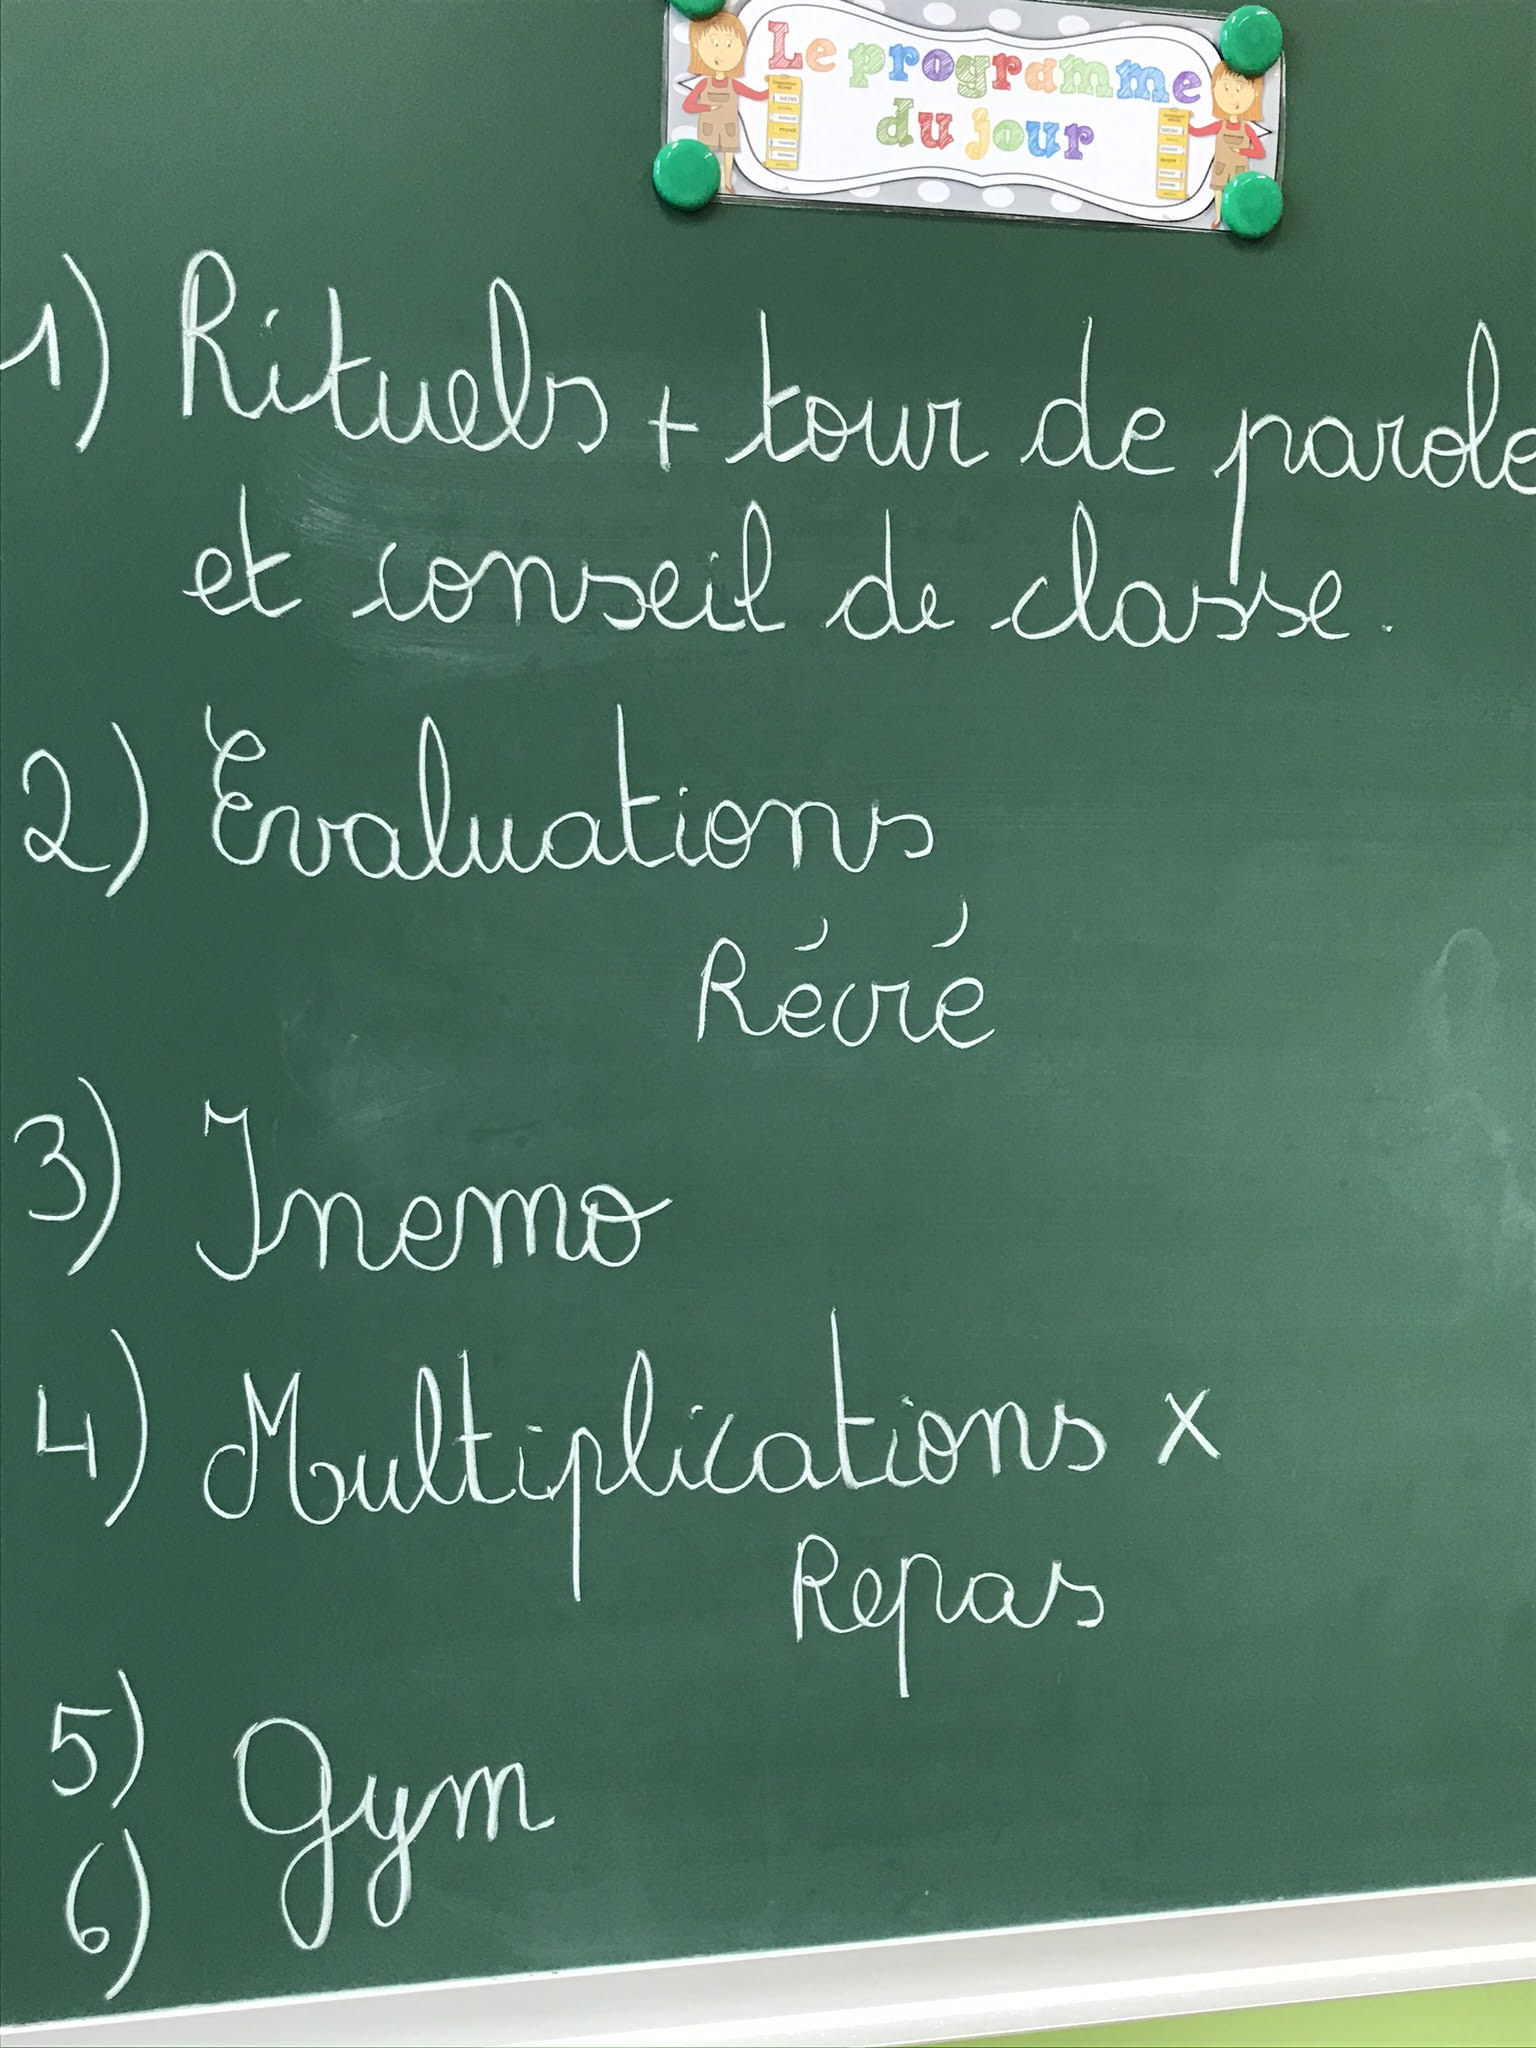 Le programme
du jour
1) Rituels + tour de parole
et conseil de classe.
2) Évaluations
Récré
3) Inemo
4) Multiplications x
Repas
5) Gym
6)